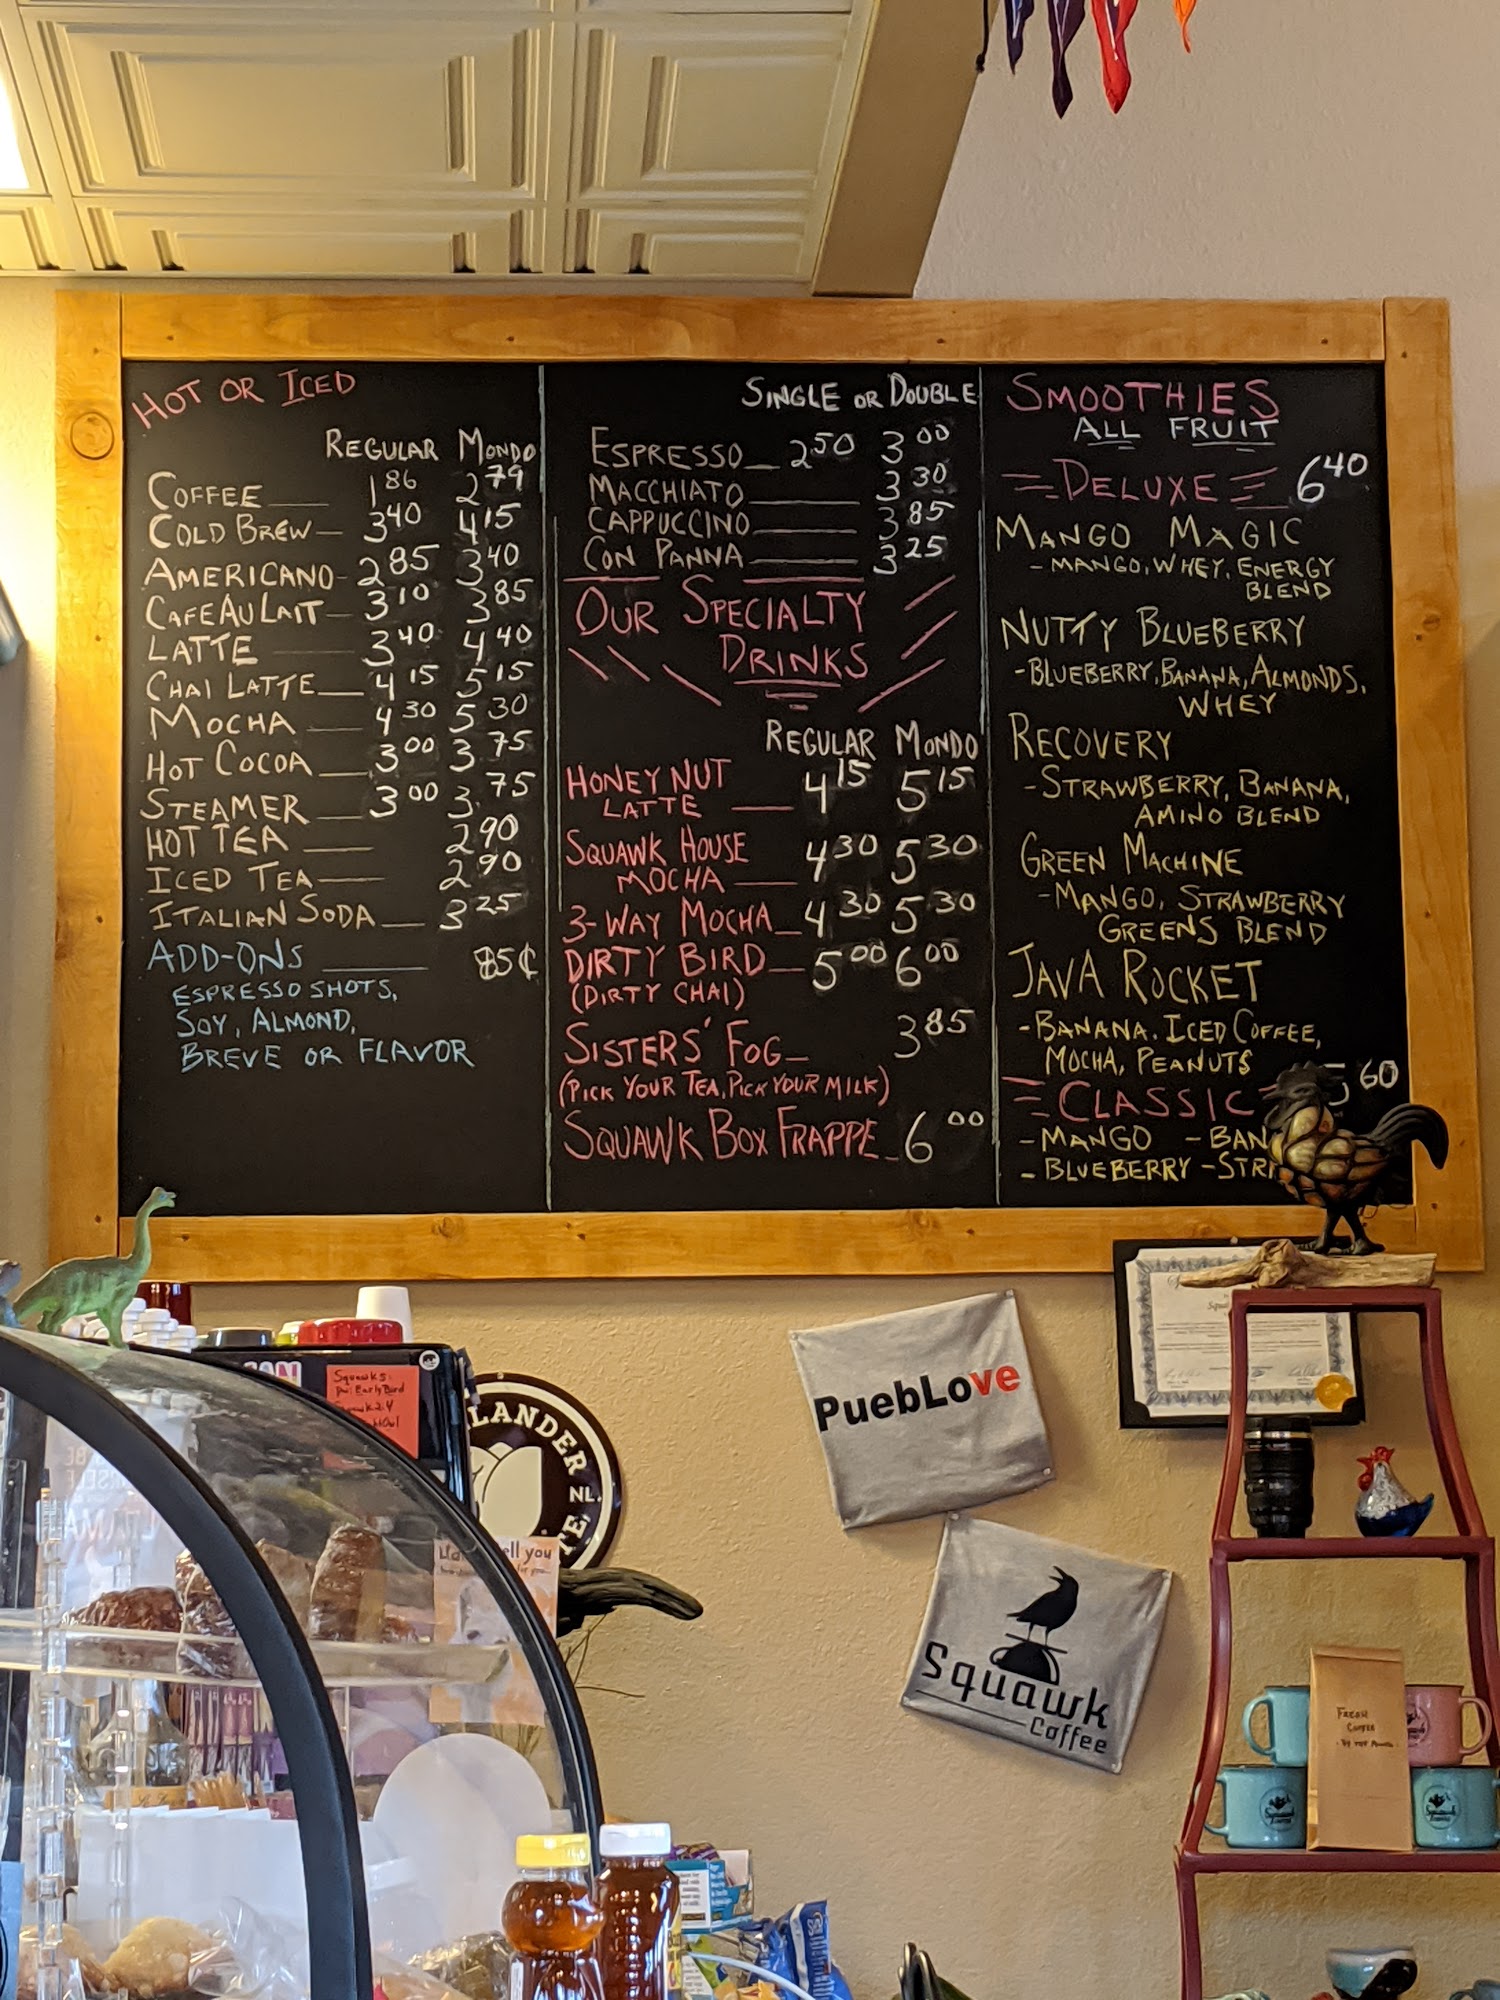 HOT OR ICED
REGULAR MONDO
COFFEE 1 86 2 79
COLD BREW 3 40 4 15
AMERICANO 2 85 3 40
CAFE AU LAIT 3 10 3 85
LATTE 3 40 4 40
CHAI LATTE 4 15 5 15
MOCHA 4 30 5 30
HOT COCOA 3 00 3 75
STEAMER 3 00 3 75
HOT TEA 2 90
ICED TEA 2 90
ITALIAN SODA 3 25
ADD-ONS 85¢
ESPRESSO SHOTS,
SOY, ALMOND,
BREVE OR FLAVOR
SINGLE OR DOUBLE
ESPRESSO 2 50 3 00
MACCHIATO 3 30
CAPPUCCINO 3 85
CON PANNA 3 25
OUR SPECIALTY
DRINKS
REGULAR MONDO
HONEY NUT
LATTE 4 15 5 15
SQUAWK HOUSE
MOCHA 4 30 5 30
3-WAY MOCHA 4 30 5 30
DIRTY BIRD 5 00 6 00
(DIRTY CHAI)
SISTERS' FOG 3 85
(PICK YOUR TEA, PICK YOUR MILK)
SQUAWK BOX FRAPPE 6 00
SMOOTHIES
ALL FRUIT
DELUXE 6 40
MANGO MAGIC
- MANGO, WHEY, ENERGY
BLEND
NUTTY BLUEBERRY
- BLUEBERRY, BANANA, ALMONDS,
WHEY
RECOVERY
- STRAWBERRY, BANANA,
AMINO BLEND
GREEN MACHINE
- MANGO, STRAWBERRY
GREENS BLEND
JAVA ROCKET
- BANANA, ICED COFFEE,
MOCHA, PEANUTS
CLASSIC 5 60
- MANGO - BAN
- BLUEBERRY - STR
PuebLove
Squawk
Coffee
LANDER
NL.
Squawk 5:
Early Bird
Squawk 2:4
ell you
FRESH
COFFEE